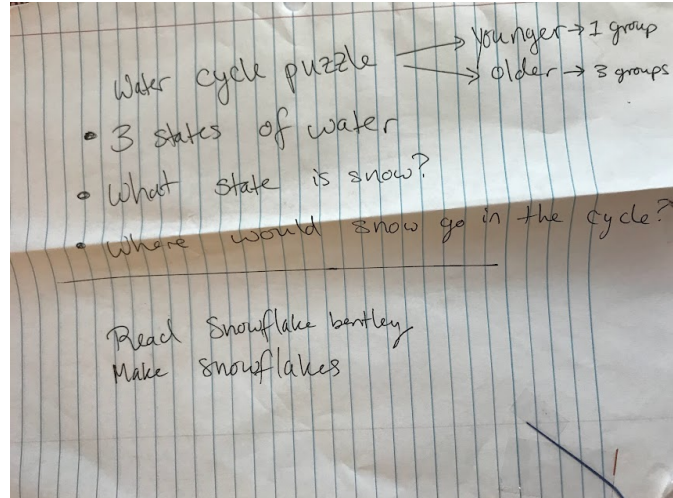 Water cycle puzzle → younger → 1 group
→ older → 3 groups
• 3 states of water
• What state is snow?
• Where would snow go in the cycle?
Read Snowflake bentley
Make snowflakes